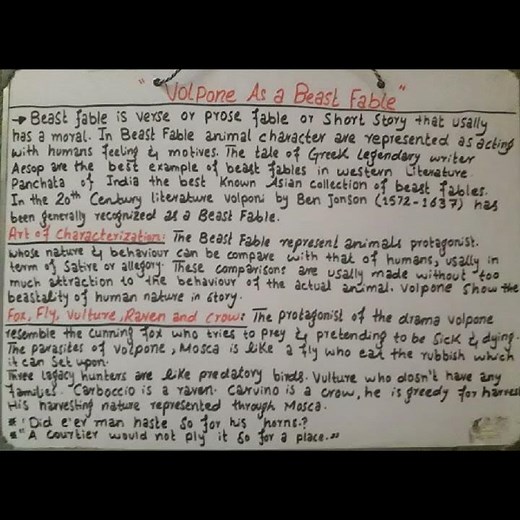 "Volpone As a Beast Fable"
→ Beast fable is verse or prose fable or Short Story that usally
has a moral. In Beast Fable animal character are represented as acting
with humans feeling & motives. The tale of Greek legendary writer
Aesop are the best example of beast fables in western literature.
Panchata of India the best Known Asian collection of beast fables.
In the 20th Century literature volponi by Ben Jonson (1572-1637) has
been generally recognized as a Beast Fable.
Art of Characterization: The Beast Fable represent animals protagonist.
whose nature & behaviour can be compare with that of humans, usally in
term of Sative or allegory. These comparisons are usally made without too
much attraction to the behaviour of the actual animal. Volpone Show the
beastality of human nature in story.
Fox, Fly, Vulture, Raven and Crow: The protagonist of the drama volpone
resemble the cunning fox who tries to prey & pretending to be Sick & dying.
The parasites of volpone, Mosca is like a fly who eat the rubbish which
it can Set upon.
Three legacy hunters are like predatory birds. Vulture who dosn't have any
families. Carboccio is a raven. Carvino is a crow, he is greedy for harvest
His harvesting nature represented through Mosca.
* "Did e'er man haste So for his horns.?
* "A courtier would not ply it so for a place."